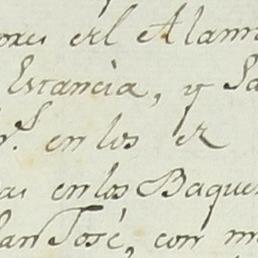 ores el Alam
Estancia, y Sa
r.s en los er
as en los Baque
San José, con m